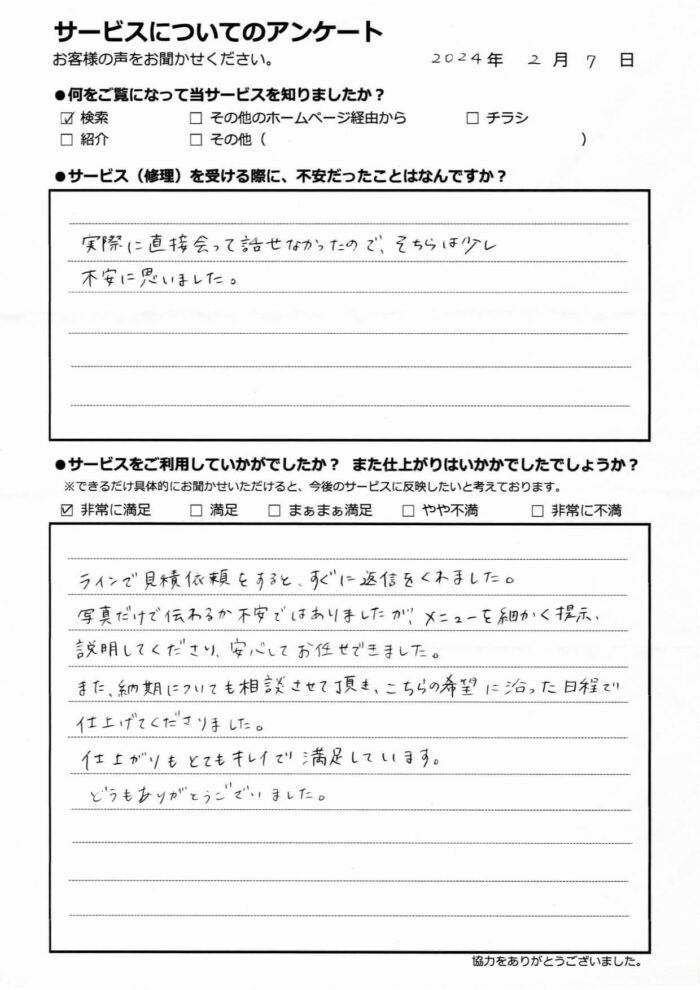 サービスについてのアンケート
お客様の声をお聞かせください。 2024年 2月 7日
●何をご覧になって当サービスを知りましたか？
☑ 検索 □ その他のホームページ経由から □ チラシ
□ 紹介 □ その他（ ）
●サービス（修理）を受ける際に、不安だったことはなんですか？
実際に直接会って話せなかったので、そちらは少し
不安に思いました。
●サービスをご利用していかがでしたか？ また仕上がりはいかかでしたでしょうか？
※できるだけ具体的にお聞かせいただけると、今後のサービスに反映したいと考えております。
☑ 非常に満足 □ 満足 □ まぁまぁ満足 □ やや不満 □ 非常に不満
ラインで見積依頼をすると、すぐに返信をくれました。
写真だけで伝わるか不安ではありましたが、メニューを細かく提示、
説明してくださり、安心してお任せできました。
また、納期についても相談させて頂き、こちらの希望に沿った日程で
仕上げてくださりました。
仕上がりもとてもキレイで満足しています。
どうもありがとうございました。
協力をありがとうございました。